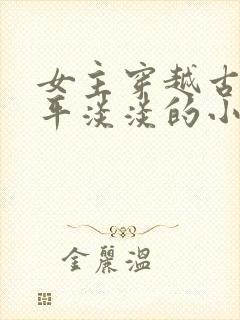 女主穿越古
平淡淡的小
金麗温